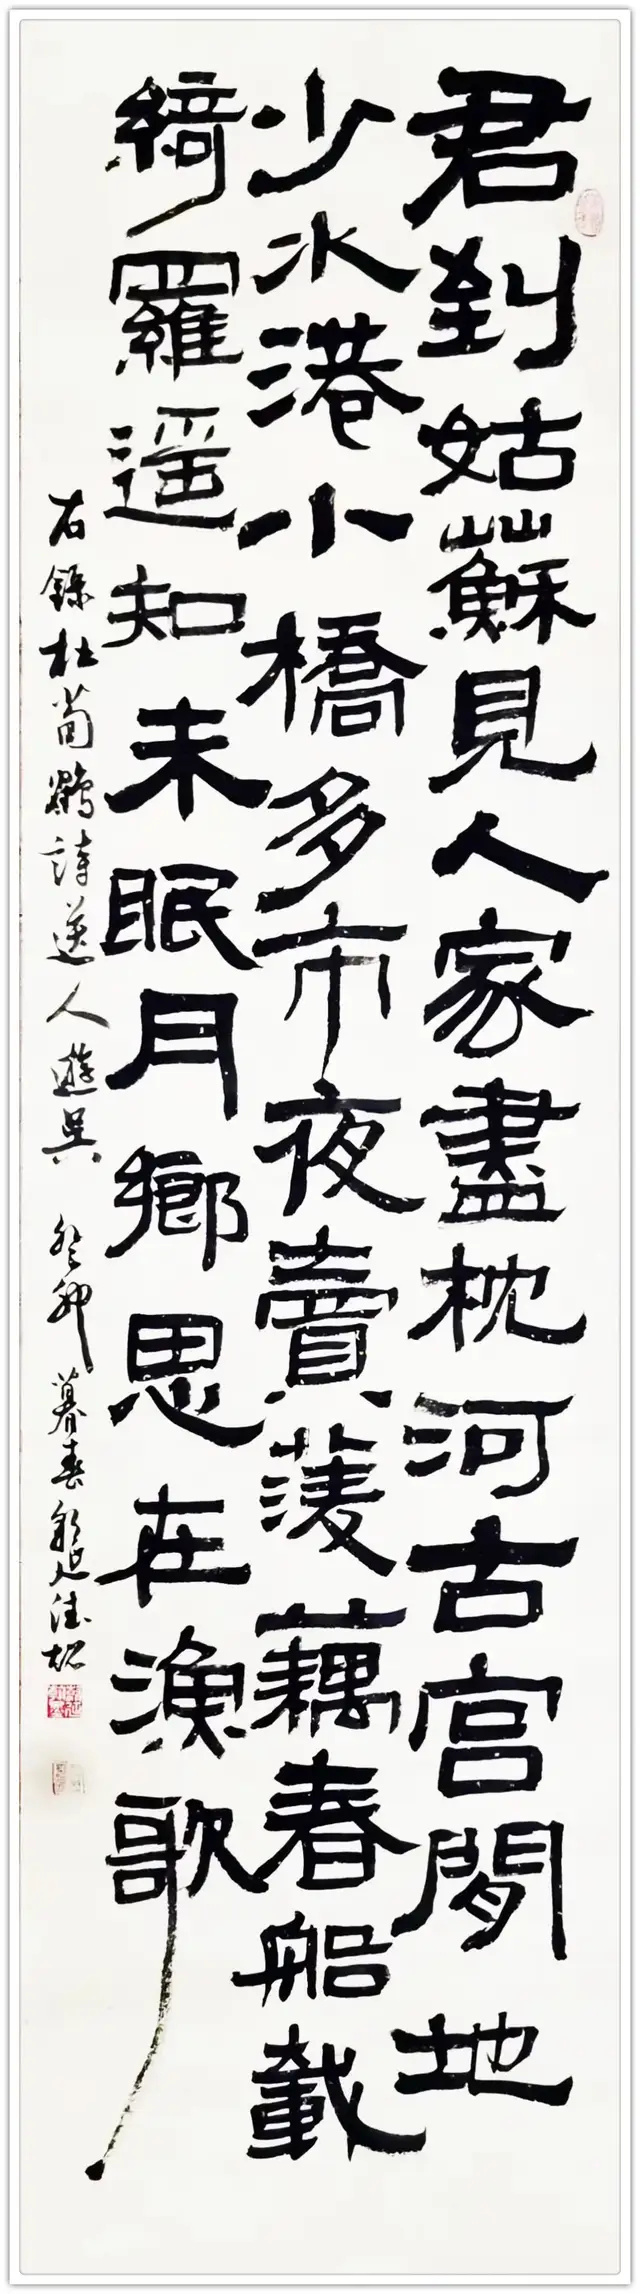 君到姑蘇見人家盡枕河古宮閒地
少水港小橋多市夜賣菱藕春船載
綺羅遥知未眠月鄉思在漁歌
右錄杜荀鶴詩送人遊吳 癸卯暮春